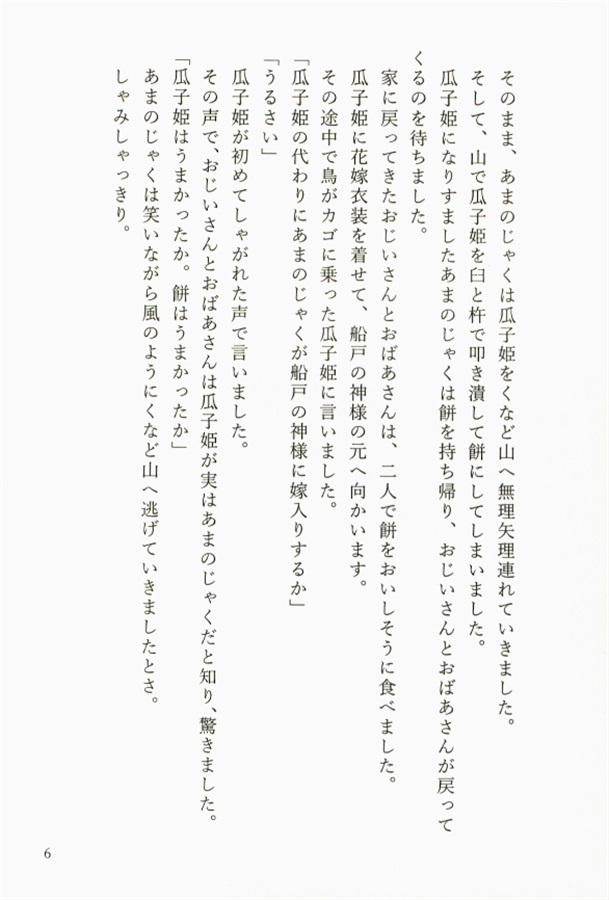 そのまま、あまのじゃくは瓜子姫をくなど山へ無理矢理連れていきました。
そして、山で瓜子姫を臼と杵で叩き潰して餅にしてしまいました。
瓜子姫になりすましたあまのじゃくは餅を持ち帰り、おじいさんとおばあさんが戻って
くるのを待ちました。
家に戻ってきたおじいさんとおばあさんは、二人で餅をおいしそうに食べました。
瓜子姫に花嫁衣装を着せて、船戸の神様の元へ向かいます。
その途中で鳥がカゴに乗った瓜子姫に言いました。
「瓜子姫の代わりにあまのじゃくが船戸の神様に嫁入りするか」
「うるさい」
瓜子姫が初めてしゃがれた声で言いました。
その声で、おじいさんとおばあさんは瓜子姫が実はあまのじゃくだと知り、驚きました。
「瓜子姫はうまかったか。餅はうまかったか」
あまのじゃくは笑いながら風のようにくなど山へ逃げていきましたとさ。
しゃみしゃっきり。
6